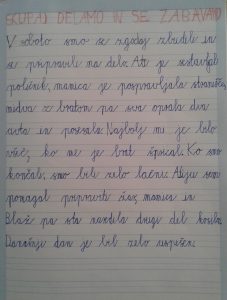 SKUPAJ DELAMO IN SE ZABAVAMO
V soboto smo se zgodaj zbudili in
se pripravili na delo. Ati je sestavljal
poličnik, mamica je pospravljala stranišče,
midva z bratom pa sva oprala dva
avta in posesala. Najbolj mi je bilo
všeč, ko me je brat šprical. Ko smo
končali, smo bili zelo lačni. Atiju sem
pomagal pripraviti žar, mamica in
Blaž pa sta naredila drugi del kosila.
Današnje dan je bil zelo uspešen.